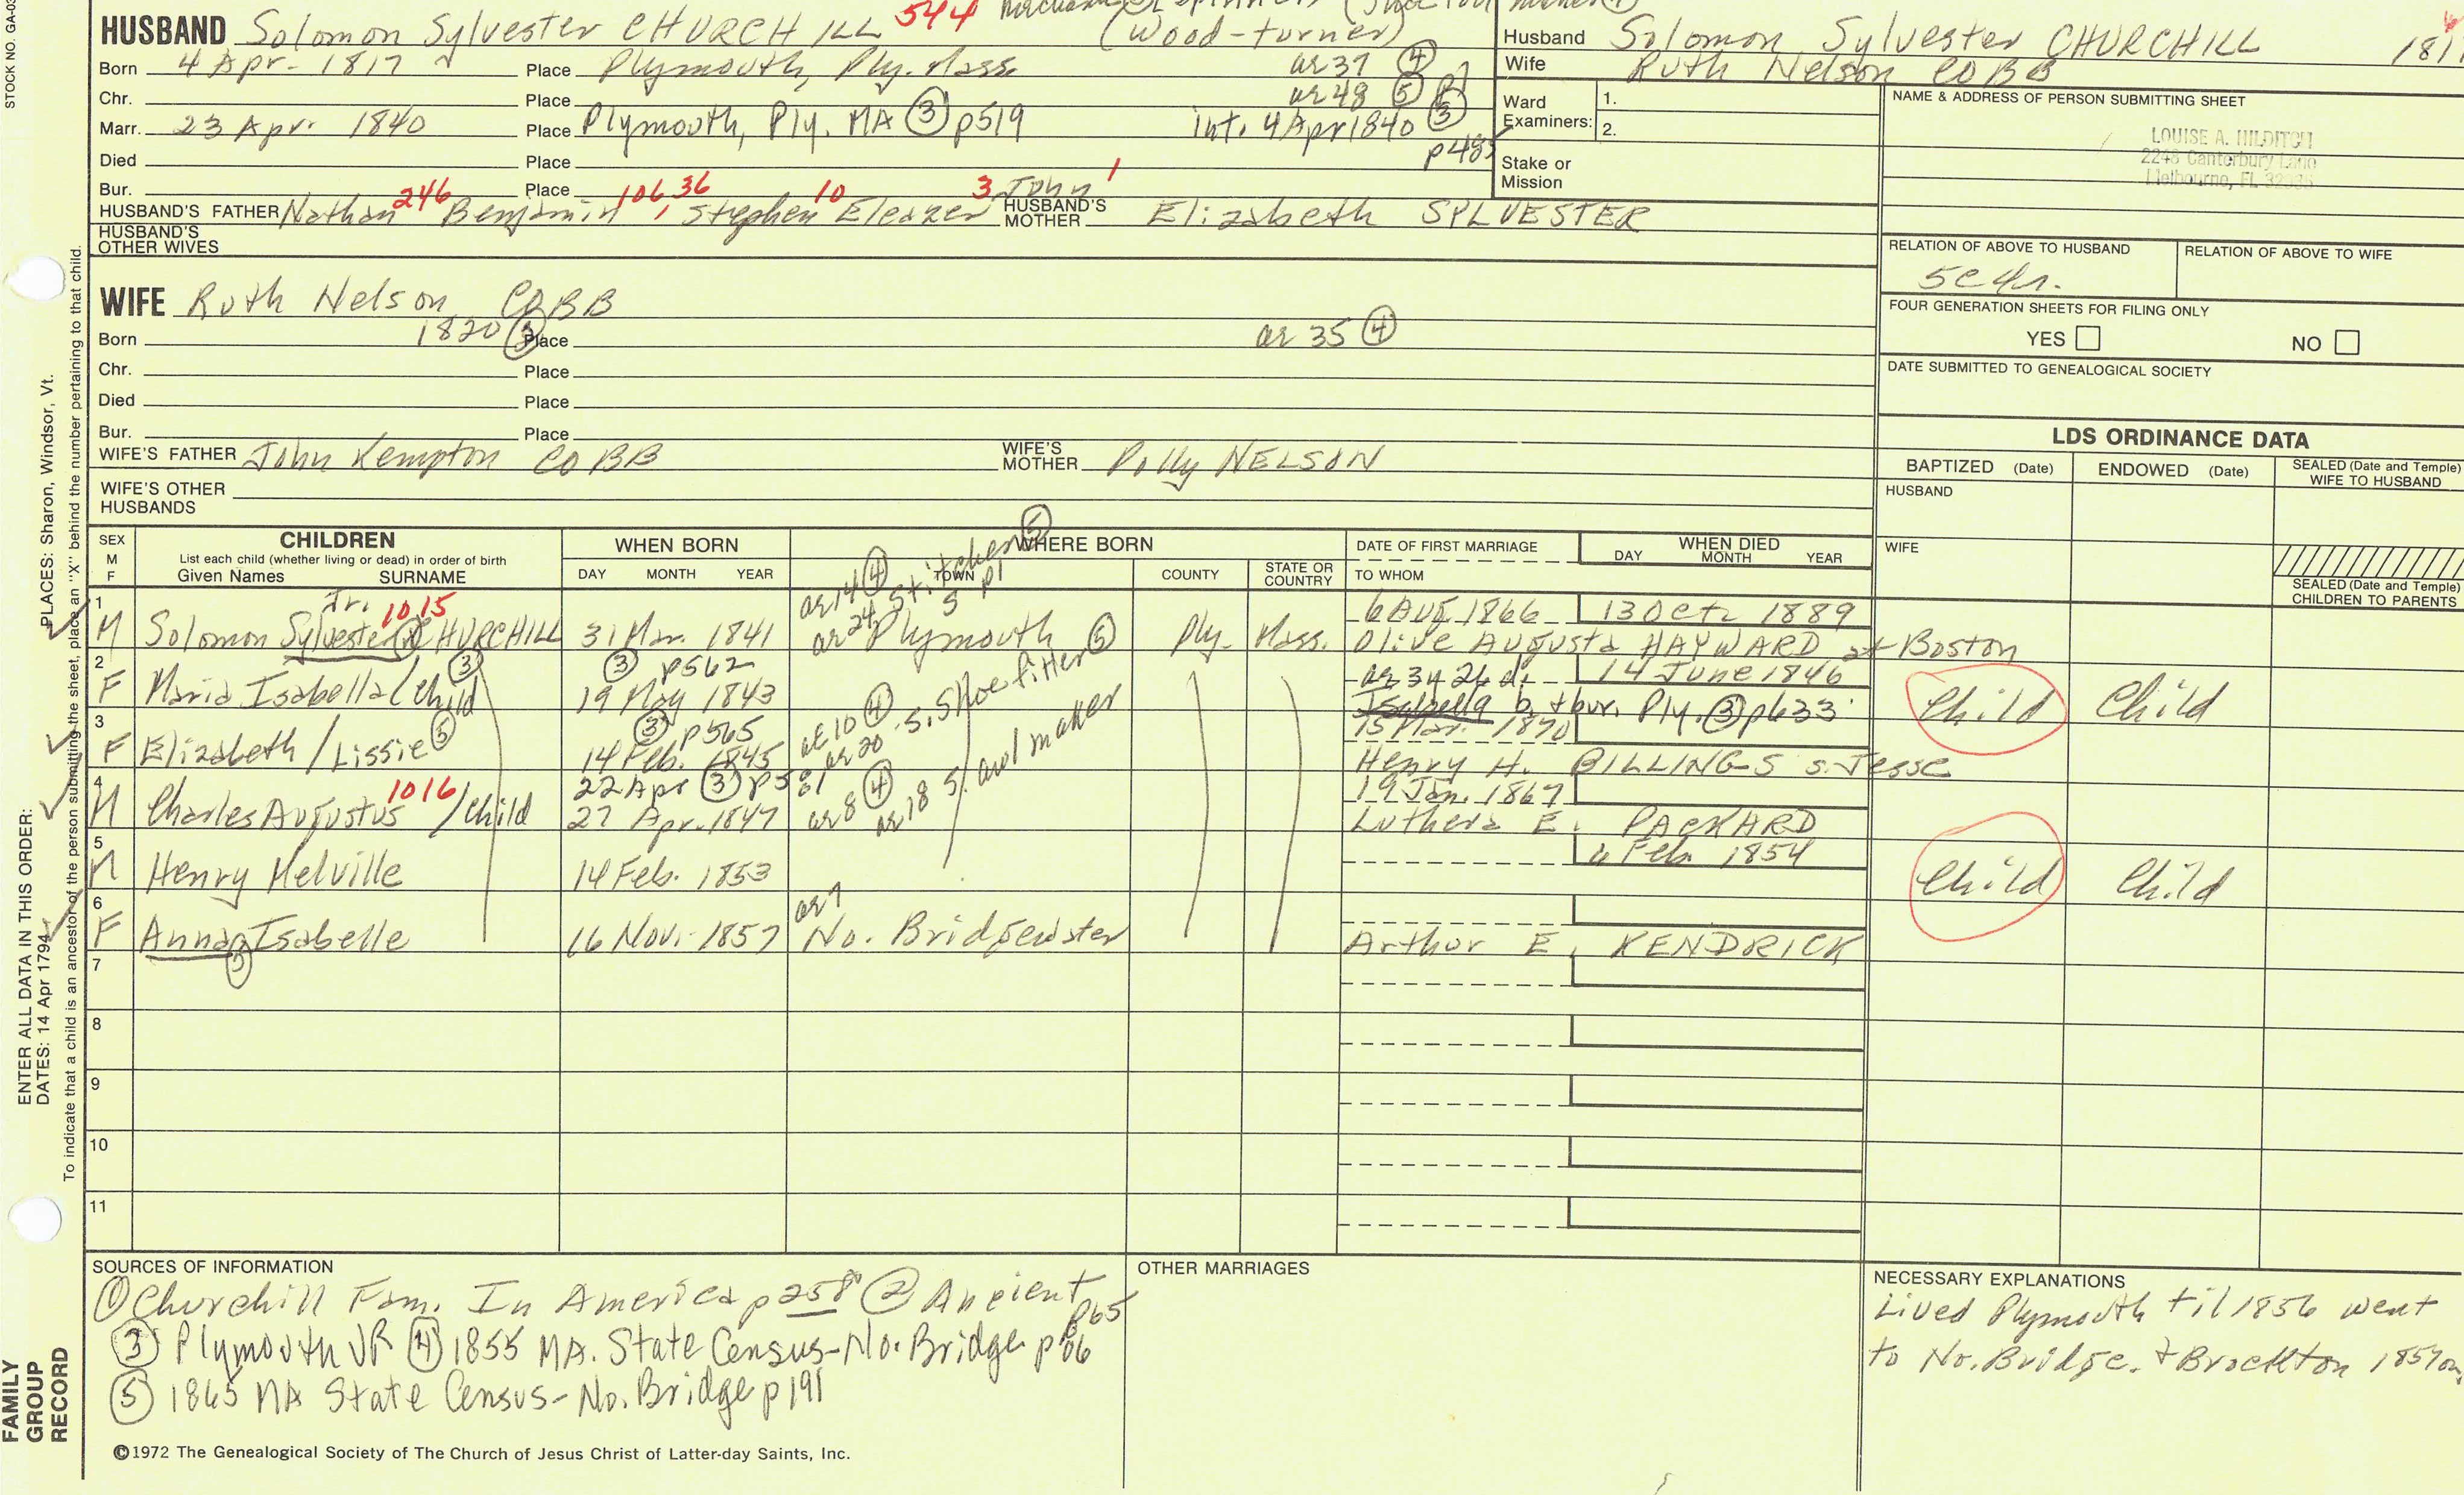 STOCK NO. GA-03
HUSBAND Solomon Sylvester CHURCHILL 544
(Wood-turner)
Born 4 Apr. 1817 Place Plymouth, Ply. Mass. ae 37 ④
Chr. Place ae 48 ⑤
Marr. 23 Apr. 1840 Place Plymouth, Ply. MA ③ p519 int. 4 Apr 1840 ③
p485
Died Place
Bur. Place
HUSBAND'S FATHER Nathan 246 Benjamin 106, 36 Stephen 10 Eleazer 3 John 1
HUSBAND'S MOTHER Elizabeth SYLVESTER
HUSBAND'S OTHER WIVES
Husband Solomon Sylvester CHURCHILL 181
Wife Ruth Nelson COBB
Ward Examiners: 1.
2.
Stake or Mission
NAME & ADDRESS OF PERSON SUBMITTING SHEET
LOUISE A. HILDITCH
2248 Canterbury Lane
Melbourne, FL 32935
RELATION OF ABOVE TO HUSBAND
5c4r.
RELATION OF ABOVE TO WIFE
FOUR GENERATION SHEETS FOR FILING ONLY
YES NO
DATE SUBMITTED TO GENEALOGICAL SOCIETY
WIFE Ruth Nelson COBB
Born 1820 ③ Place ae 35 ④
Chr. Place
Died Place
Bur. Place
WIFE'S FATHER John Kempton COBB
WIFE'S MOTHER Polly NELSON
WIFE'S OTHER HUSBANDS
LDS ORDINANCE DATA
BAPTIZED (Date) ENDOWED (Date) SEALED (Date and Temple) WIFE TO HUSBAND
HUSBAND
WIFE
SEALED (Date and Temple) CHILDREN TO PARENTS
SEX M F
CHILDREN
List each child (whether living or dead) in order of birth
Given Names SURNAME
WHEN BORN
DAY MONTH YEAR
WHERE BORN
TOWN COUNTY STATE OR COUNTRY
DATE OF FIRST MARRIAGE
TO WHOM
WHEN DIED
DAY MONTH YEAR
ae 14 ④
ae 24 Stitcher ⑤
S p1
1 M Solomon Sylvester Jr. 1015 CHURCHILL 31 Mar. 1841 Plymouth Ply. Mass. 6 Aug 1866 13 Oct. 1889
Olive Augusta HAYWARD at Boston
2 F Maria Isabella/Child ③ ③ p562 19 May 1843 ae 3y 26 d. 14 June 1846
Isabella b. + bur. Ply. ③ p633
Child Child
3 F Elizabeth/Lissie ⑤ ③ p565 14 Feb. 1845 ae 10 ④ ae 20 S. Shoe fitter ⑤ 15 Mar. 1870
Henry H. BILLINGS s. Jesse
4 M Charles Augustus 1016 /Child 22 Apr ③ p581 27 Apr. 1847 ae 8 ④ ae 18 S. awl maker 19 Jan. 1867
Luthera E. PACKARD
5 M Henry Melville 14 Feb. 1853 4 Feb. 1854
Child Child
6 F Anna ⑤ Isabelle 16 Nov. 1857 ae 7 No. Bridgewater
Arthur E. KENDRICK
7
8
9
10
11
SOURCES OF INFORMATION
① Churchill Fam. In America p 258 ② Ancient
p65
③ Plymouth VR ④ 1855 MA. State Census-No. Bridge p66
⑤ 1865 MA State Census-No. Bridge p191
OTHER MARRIAGES
NECESSARY EXPLANATIONS
Lived Plymouth til 1856 went
to No. Bridge. + Brockton 1857on
©1972 The Genealogical Society of The Church of Jesus Christ of Latter-day Saints, Inc.
FAMILY GROUP RECORD
ENTER ALL DATA IN THIS ORDER:
DATES: 14 Apr 1794
PLACES: Sharon, Windsor, Vt.
To indicate that a child is an ancestor of the person submitting the sheet, place an "X" behind the number pertaining to that child.